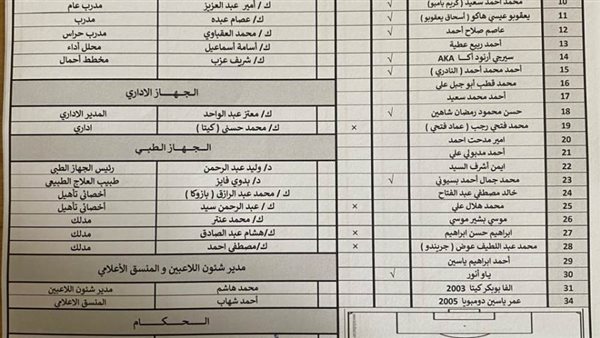 محمد أحمد سعيد ( كريم بامبو ) 10 √
يعقوبو عيسي هاكو ( أسحاق يعقوبو ) 11 √
عاصم صلاح أحمد 12 √
أحمد ربيع عطية 13
سيرجي أرنود أكا AKA 14 √
أحمد محمد أحمد ( النادري ) 15 √
محمد قطب أبو جبل علي 16
أحمد محمد سعيد 17
حسن محمود رمضان شاهين 18 √
محمد فتحي رجب ( عماد فتحي ) 19 ×
امير مدحت احمد 20
أحمد مدبولي علي 21
ايمن أشرف السيد 22
محمد جمال أحمد بسيوني 23 √
خالد مصطفي عبد الفتاح 24
محمد هلال علي 25 ×
موسي بشير موسي 26
ابراهيم حسن ابراهيم 27 ×
محمد عبد اللطيف عوض ( جريندو ) 28 ×
أحمد ابراهيم ياسين 29
ياو أنور 30 √
الفا بوبكر كيتا 2003 31
عمر ياسين دومبويا 2005 34
ك/ أمير عبد العزيز مدرب عام
ك/ عصام عبده مدرب
ك/ محمد العقباوي مدرب حراس
ك/ أسامة أسماعيل محلل أداء
ك/ شريف عزب مخطط أحمال
الجهاز الاداري
ك/ معتز عبد الواحد المدير الاداري
ك/ محمد حسني ( كيتا ) اداري
الجهاز الطبي
د/ وليد عبد الرحمن رئيس الجهاز الطبي
د/ بدوي فايز طبيب العلاج الطبيعي
ك / محمد عبد الرازق ( بازوكا ) أخصائي تأهيل
ك / عبد الرحمن سيد أخصائي تأهيل
ك/ محمد عنتر مدلك
ك/هشام عبد الصادق مدلك
ك/مصطفي احمد مدلك
مدير شئون اللاعبين و المنسق الأعلامي
محمد هاشم مدير شئون اللاعبين
أحمد شهاب المنسق الاعلامي
الحكام